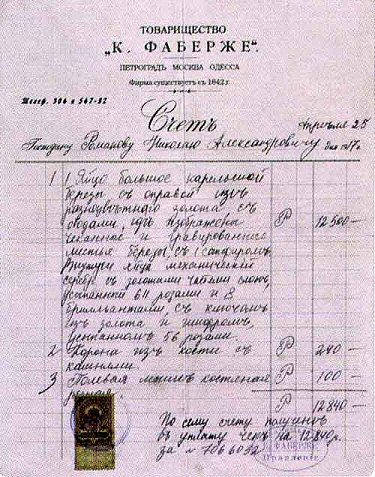 ТОВАРИЩЕСТВО
„К. ФАБЕРЖЕ“.
ПЕТРОГРАДЪ МОСКВА ОДЕССА
Фирма существуетъ съ 1842 г.
Телеф. 306 и 567-92
Счетъ
Апреля 25
Господину Романову Николаю Александровичу дня 1917 г.
1 1 Яйцо большое карельской
березы съ оправой изъ
разноцвѣтного золота съ
сводами, где изображены
чеканные и гравированные
листья березы, съ 1 сапфиромъ Р 12500 —
Внутри яйца механический
серебр съ золотыми слонъ,
усыпанный розами и 8
бриллиантами, съ ключомъ
изъ золота и шифромъ,
усыпанномъ 56 розами.
2 Корона изъ кости съ Р 240 —
камнями
3 Полевая костеная Р 100 —
Р 12840 —
По сему счету полученъ
въ уплату чекъ на 12840 р.
за № 7066092
ФАБЕРЖЕ
Правленіе